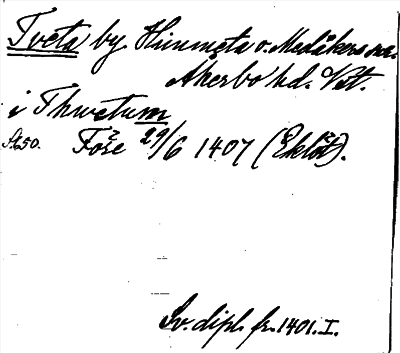 Tveta by Himmeta o. Medåkers sn.
Åkerbo hd. Vst.
i Thwetum
St. 50. Före 29/6 1407 (Eklöt).
Sv. dipl. fr. 1401. I.